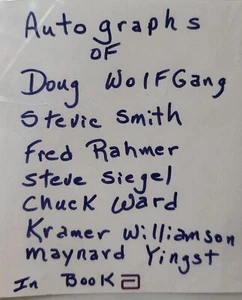 Autographs
OF
Doug WolfGang
Stevie Smith
Fred Rahmer
Steve Siegel
Chuck Ward
Kramer Williamson
maynard Yingst
In Book